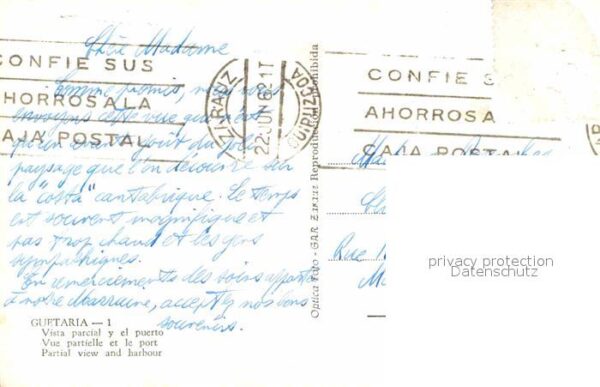 Chère Madame
CONFIE SUS
AHORROSALA
CAJA POSTAL
ZARAUZ
22 JUN 6 11T
GUIPUZCOA
Comme promis, nous vous
envoyons cette vue qui n'est
qu'un du joli
paysage que l'on découvre sur
la "costa" cantabrique. Le temps
est souvent magnifique et
pas trop chaud et les gens
sympathiques.
En remerciements des soins
à notre Marraine, acceptez nos bons
souvenirs.
GUETARIA — 1
Vista parcial y el puerto
Vue partielle et le port
Partial view and harbour
Optica Foto - GAR ZARAUZ Reproducción Prohibida
CONFIE S
AHORROSA
CAJA POSTAL
Rue
privacy protection
Datenschutz